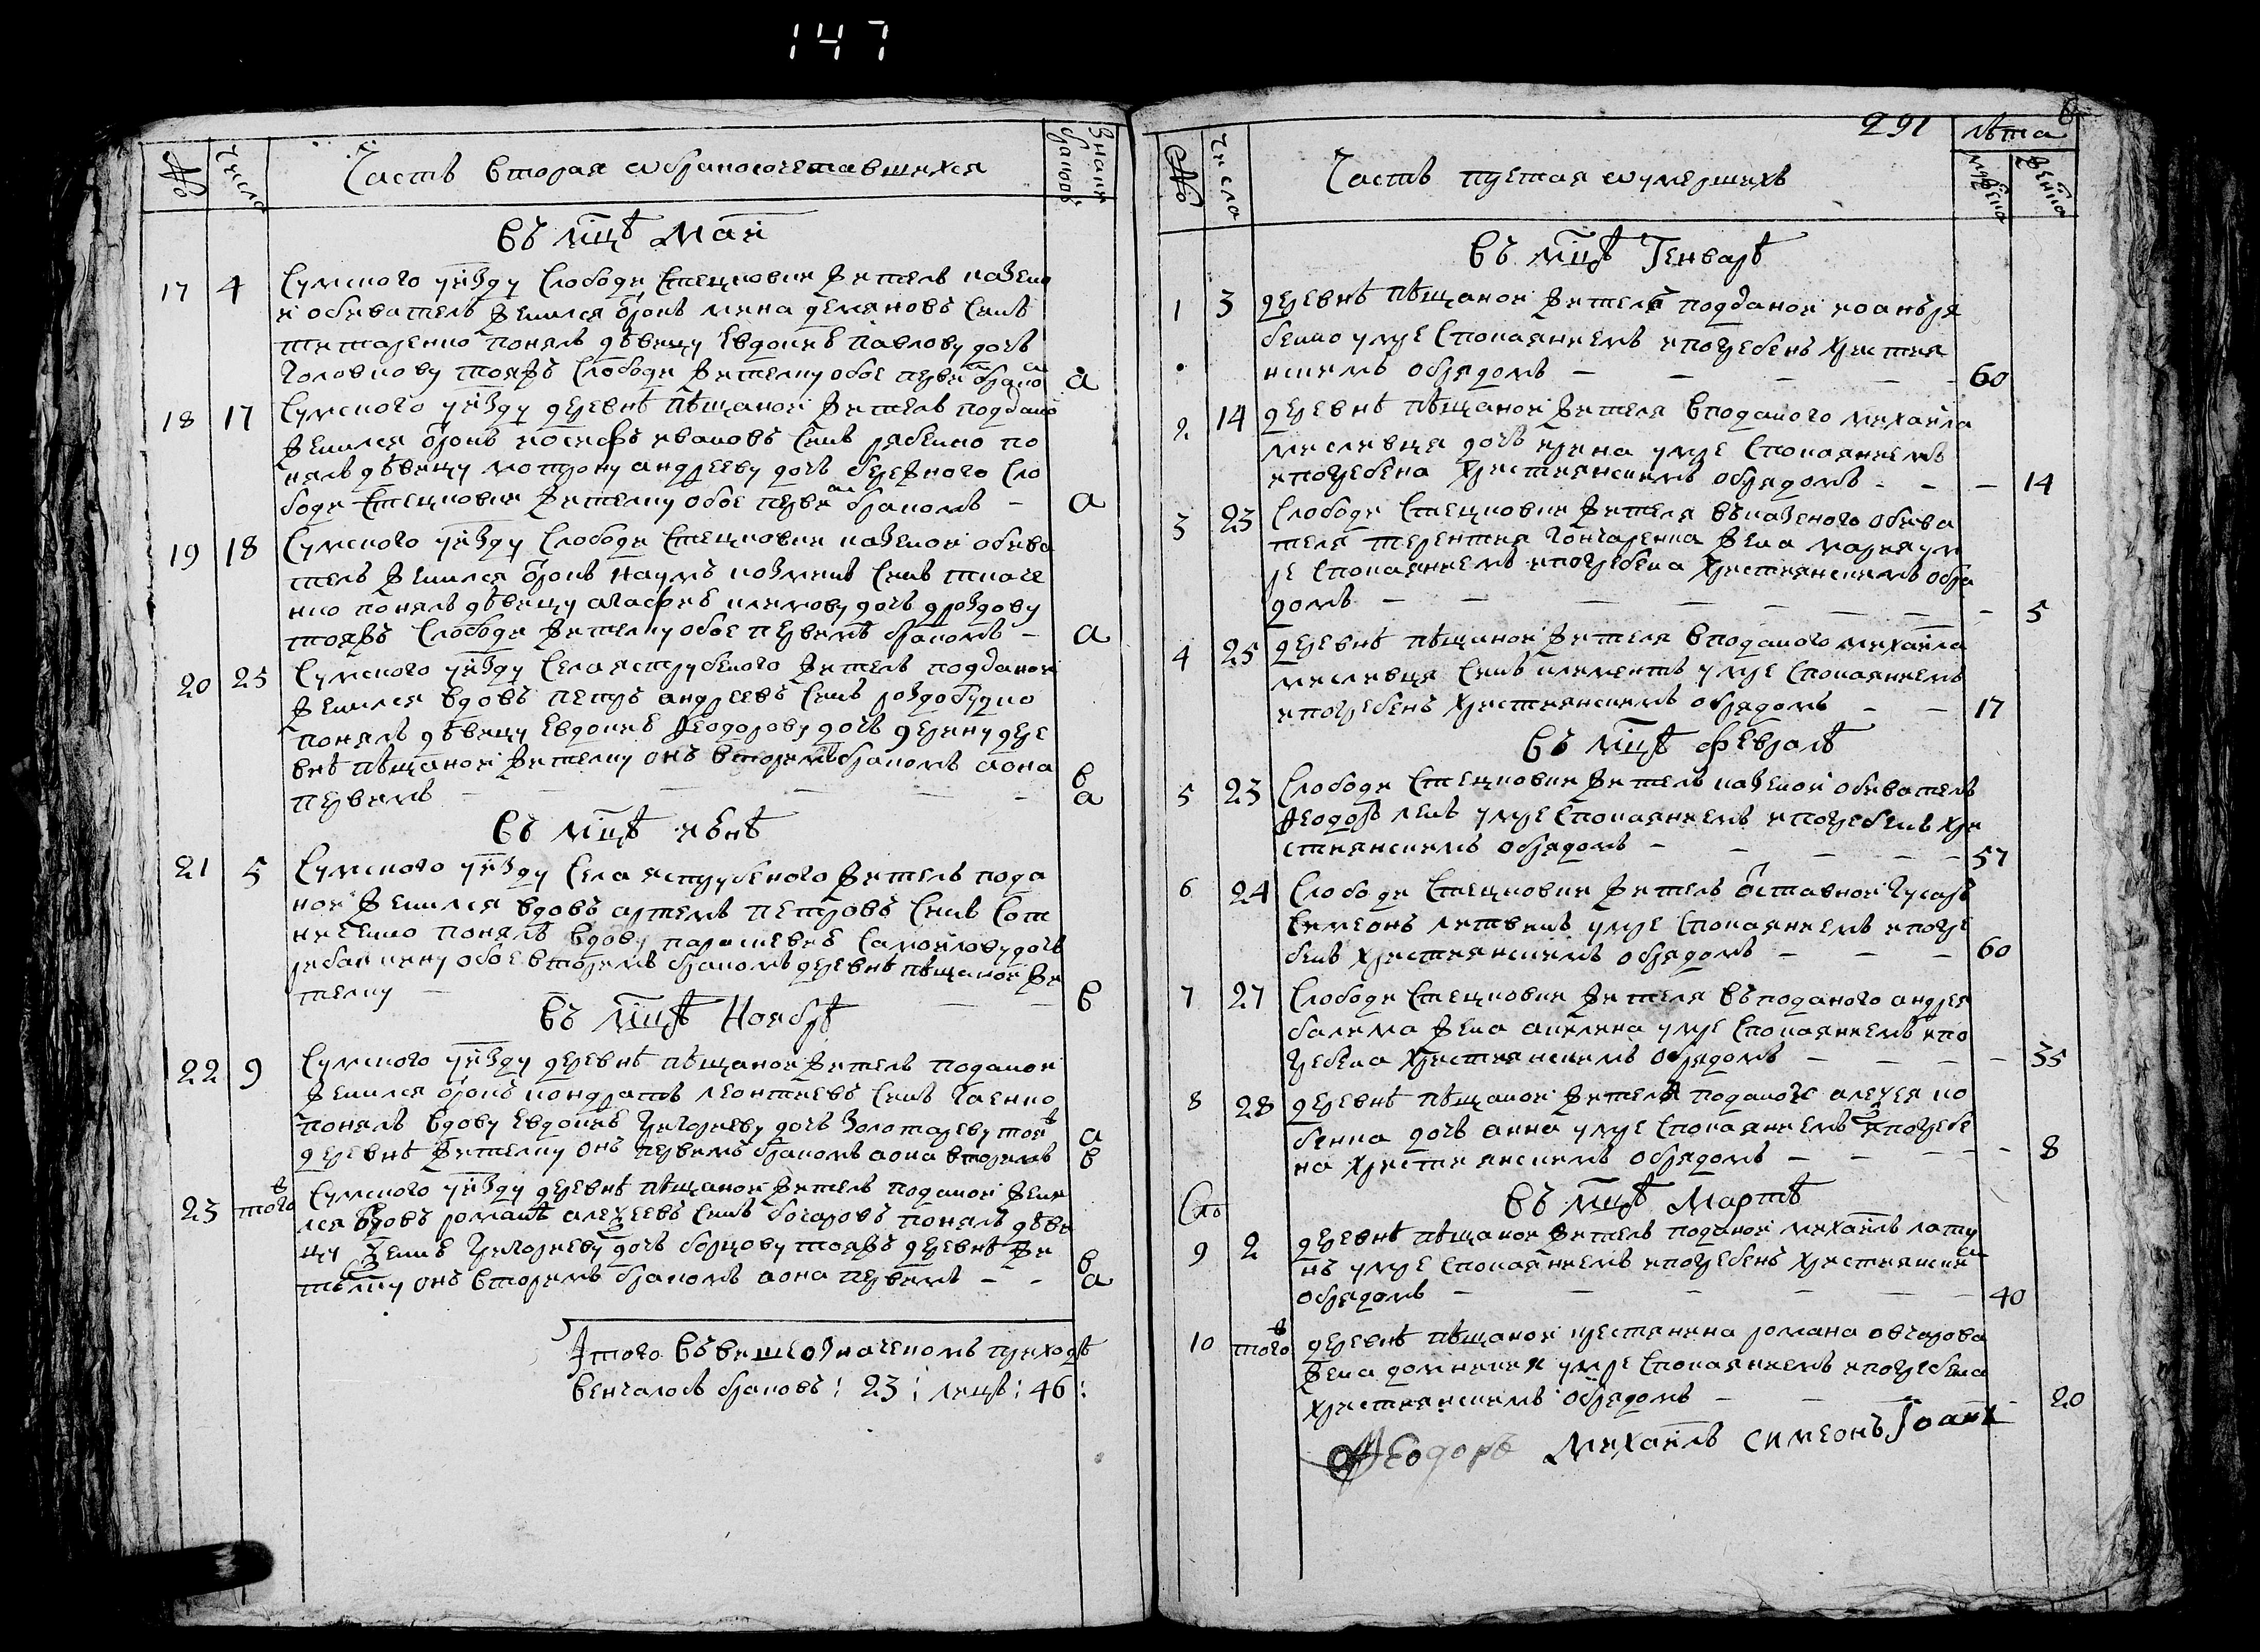 147
№
Число
Часть вторая ѡ бракосочетавшихся
Знаки браковъ
Въ мцѣ Маіи
17 4 Сумского уѣзду слободи Стецковки житель казено
и обиватель женился отрокъ мина демяновъ синъ
понялъ дѣвицу Евдокию павлову дочъ
тояжъ слободи жителку обое перви бракомъ а
18 17 Сумского уѣзду деревнѣ пѣщаной житель подданой
женился отрокъ иосифъ ивановъ синъ рябенко по
нялъ дѣвицу мотрону андрееву дочъ бережного сло
боди Стецковки жителку обое первимъ бракомъ - а
19 18 Сумского уѣзду слободи Стецковки казеной обива
тель женился отрокъ наумъ козминъ синъ ткаче
нко понялъ дѣвицу агафию климову дочъ дроздову
тояжъ слободи жителку обое первимъ бракомъ - а
20 25 Сумского уѣзду села яструбеного житель подданой
женился вдовъ петръ андреевъ синъ роздобудко
понялъ дѣвицу Евдокию Ѳеодорову дочъ дере
внѣ пѣщаной жителку онъ вторимъ бракомъ а она в
первимъ - - - - - а
Въ мцѣ июнѣ
21 5 Сумского уѣзду села яструбеного житель пода
ной женился вдовъ артемъ петровъ синъ Сот
ниченко понялъ вдову параскевию самойлову дочъ
обое вторимъ бракомъ деревнѣ пѣщаной жи
телку - - - в
Въ мцѣ Ноябрѣ
22 9 Сумского уѣзду деревнѣ пѣщаной житель поданой
женился отрокъ кондратъ леонтиевъ синъ Гаенко
понялъ вдову Евдокию григориеву дочъ золотареву тоей а
деревнѣ жителку онъ первимъ бракомъ а она вторимъ в
23 тогож Сумского уѣзду деревнѣ пѣщаной житель поданой жени
лся вдовъ романъ алеѯеевъ синъ бочаровъ понялъ дѣви
цу григориеву дочъ борцову тояжъ деревнѣ жи в
телку онъ вторимъ бракомъ а она первимъ - - а
Итого въ вишеозначеномъ приходѣ
венчалось браковъ: 23: лицъ: 46:
291
№
Число
Часть третая ѡ умершихъ
лѣта
мужеска
женска
Въ мцѣ Генварѣ
1 3 деревнѣ пѣщаной житель подданой иоанъ ря
бенко умре с покаяниемъ и погребенъ христия
нскимъ обрядомъ - - - - - 60
2 14 деревнѣ пѣщаной жителя в поданого михаила
мисливця дочъ ирина умре с покаяниемъ
и погребена християнскимъ обрядомъ - - - 14
3 23 слободи Стецковки жителя въ казеного обива
теля терентия Гончаренка жена мария ум
ре с покаяниемъ и погребена християнскимъ обря
домъ - - - - - - - 5
4 25 деревнѣ пѣщаной жителя в поданого михаила
мисливця синъ климентъ умре с покаяниемъ
и погребенъ християнскимъ обрядомъ - - 17
Въ мцѣ февралѣ
5 23 слободи Стецковки житель казеной обиватель
Ѳеодоръ умре с покаяниемъ и погребенъ хри
стиянскимъ обрядомъ - - - - 57
6 24 слободи Стецковки житель отставной гусаръ
Симеонъ литвинъ умре с покаяниемъ и погре
бенъ християнскимъ обрядомъ - - - 60
7 27 слободи Стецковки жителя въ поданого андрея
жена акилина умре с покаяниемъ и по
гребена християнскимъ обрядомъ - - - - 35
8 28 деревнѣ пѣщаной жителя поданого алеѯея ко
бенка дочъ анна умре с покаяниемъ и погребе
на християнскимъ обрядомъ - - - - - 8
Въ мцѣ Мартѣ
9 2 деревнѣ пѣщаной житель поданой михаилъ лату
нъ умре с покаяниемъ и погребенъ християнским
обрядомъ - - - - - - 40
10 тогож деревнѣ пѣщаной крестянина романа овчарова
жена домникия умре с покаяниемъ и погребена
християнскимъ обрядомъ - - - 20
Ѳеодоръ Михаилъ Симеонъ Іоанъ